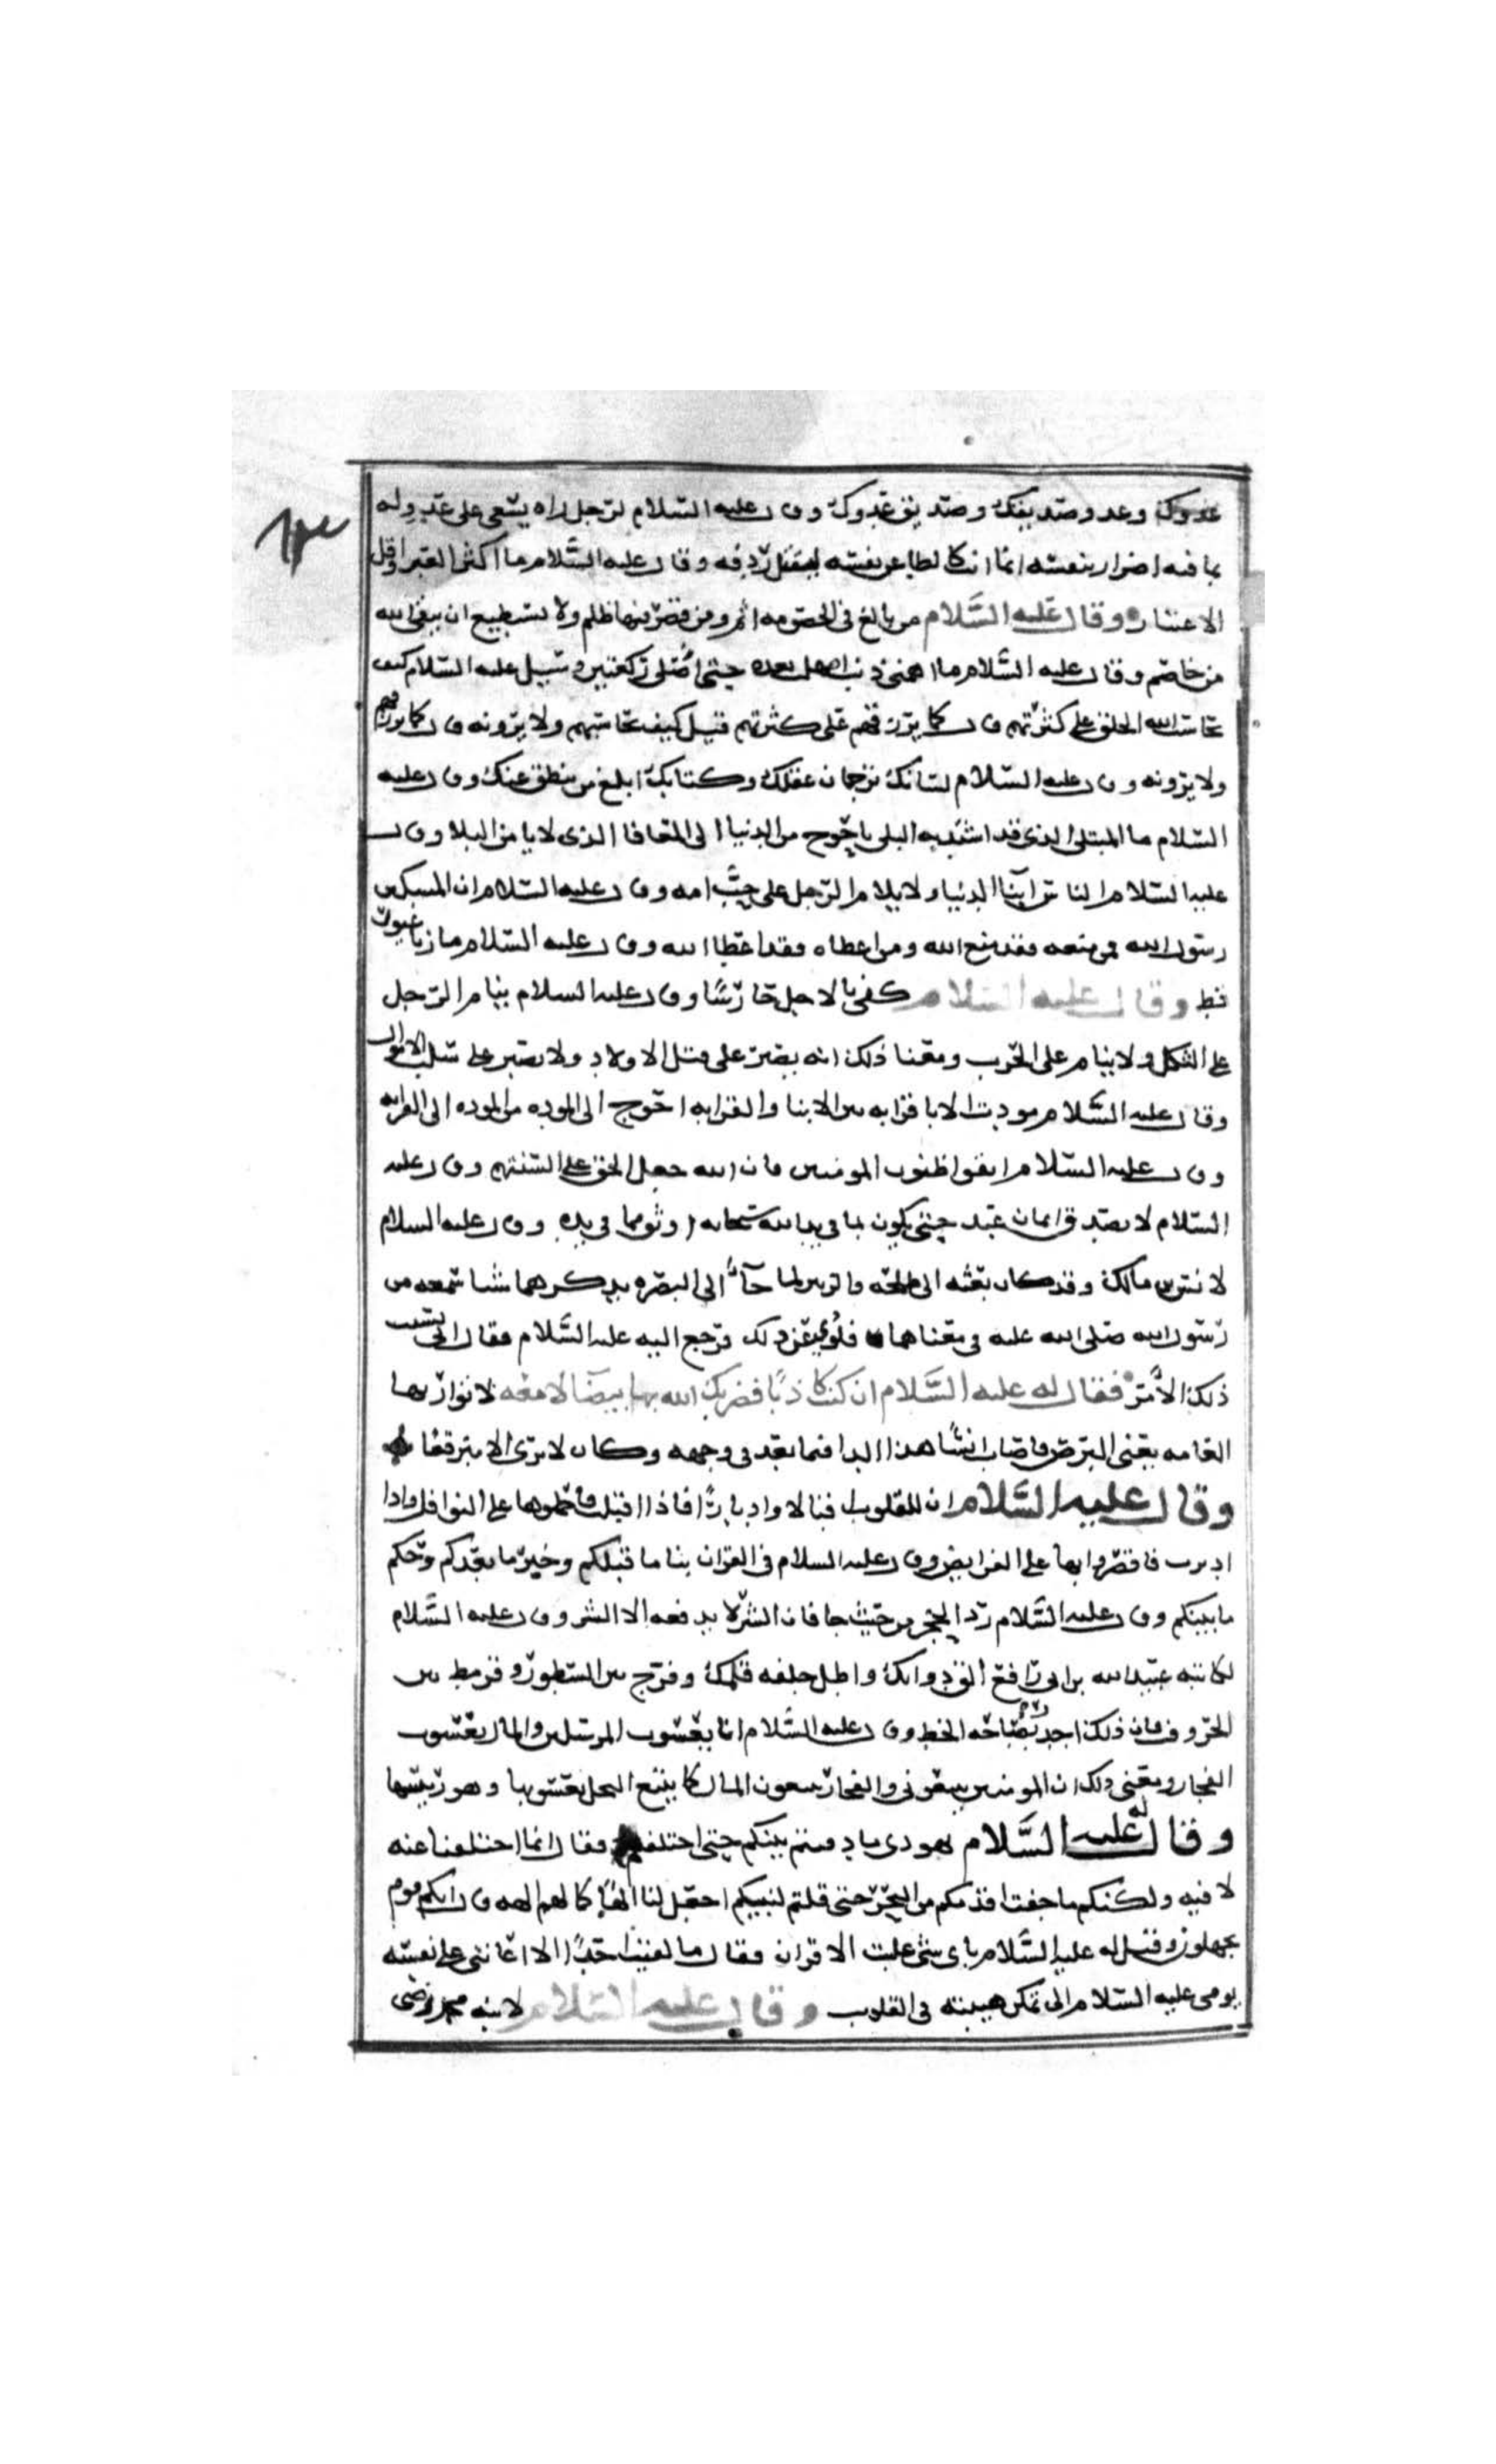 عدوك وعدو صديقك وصديق عدوك وقال عليه السلام لرجل راه يسعى على عدوله
بما فيه اضرار بنفسه انما انت كالطاعن نفسه ليقتل ردفه وقال عليه السلام ما اكثر العبر واقل
الاعتبار وقال عليه السلام من بالغ في الخصومه اثم ومن قصر فيها ظلم ولا يستطيع ان يتقى الله
من خاصم وقال عليه السلام ما اهمنى ذنب امهلت بعده حتى اصلى ركعتين وسيل عليه السلام كيف
يحاسب الله الخلق على كثرتهم قال كما يرزقهم على كثرتهم قيل كيف يحاسبهم ولا يرونه قال كما يرزقهم
ولا يرونه وقال عليه السلام لسانك ترجمان عقلك وكتابك ابلغ من ينطق عنك وقال عليه
السلام ما المبتلى الذى قد اشتد به البلى باحوج من الدنيا الى المعافا الذى لا يا من البلا وقال
عليه السلام الناس ابنا الدنيا ولا يلام الرجل على حب امه وقال عليه السلام ان المسكين
رسول الله فمن منعه فقد منع الله ومن اعطاه فقد اعطا الله وقال عليه السلام ما زنا غيور
قط وقال عليه السلام كفى بالاجل حارسا وقال عليه السلام ينام الرجل
على الثكل ولا ينام على الحرب ومعنا ذلك انه يصبر على قتل الاولاد ولا يصبر على سلب الاموال
وقال عليه السلام مودت الابا قرابه بين الابنا والقرابه احوج الى الموده من الموده الى القرابه
وقال عليه السلام اتقوا ظنون المومنين فان الله جعل الحق على السنتهم وقال عليه
السلام لا يصدق ايمان عبد حتى يكون بما في يد الله سبحانه اوثق مما في يده وقال عليه السلام
لانس بن مالك وقد كان بعثه الى طلحه والزبير لما جآ الى البصره يذكرهما شيا سمعه من
رسول الله صلى الله عليه في معناهما فلوى عن ذلك فرجع اليه عليه السلام فقال انى نسيت
ذلك الامر فقال له عليه السلام ان كنت كاذبا فضربك الله بها بيضآ لامعه لا تواريها
العمامه يعنى البرص فاصاب انسا هذا الدا فيما بعد في وجهه وكان لا يرى الا مبرقعا
وقال عليه السلام ان للقلوب اقبالا وادبارا فاذا اقبلت فاحملوها على النوافل واذا
ادبرت فاقصروا بها على الفرايض وقال عليه السلام في القران نبا ما قبلكم وخبر ما بعدكم وحكم
ما بينكم وقال عليه السلام رد الحجر من حيث جا فان الشر لا يدفعه الا الشر وقال عليه السلام
لكاتبه عبيد الله بن ابى رافع الق دواتك واطل جلفه قلمك وفرج بين السطور وقرمط بين
الحروف فان ذلك اجدر بصباحه الخط وقال عليه السلام انا يعسوب المومنين والمال يعسوب
الفجار ويعنى ذلك ان المومنين يتبعونى والفجار يتبعون المال كما يتبع النحل يعسوبها وهو رييسها
وقال له عليه السلام يهودى ما دفنتم نبيكم حتى اختلفتم فقال انما اختلفنا عنه
لا فيه ولكنكم ما جفت اقدامكم من البحر حتى قلتم لنبيكم اجعل لنا الها كما لهم الهه قال انكم قوم
تجهلون وقيل له عليه السلام باى شى غلبت الاقران فقال ما لقيت احدا الا اعاننى على نفسه
يومى عليه السلام الى تمكن هيبته في القلوب وقال عليه السلام لابنه محمد رضى